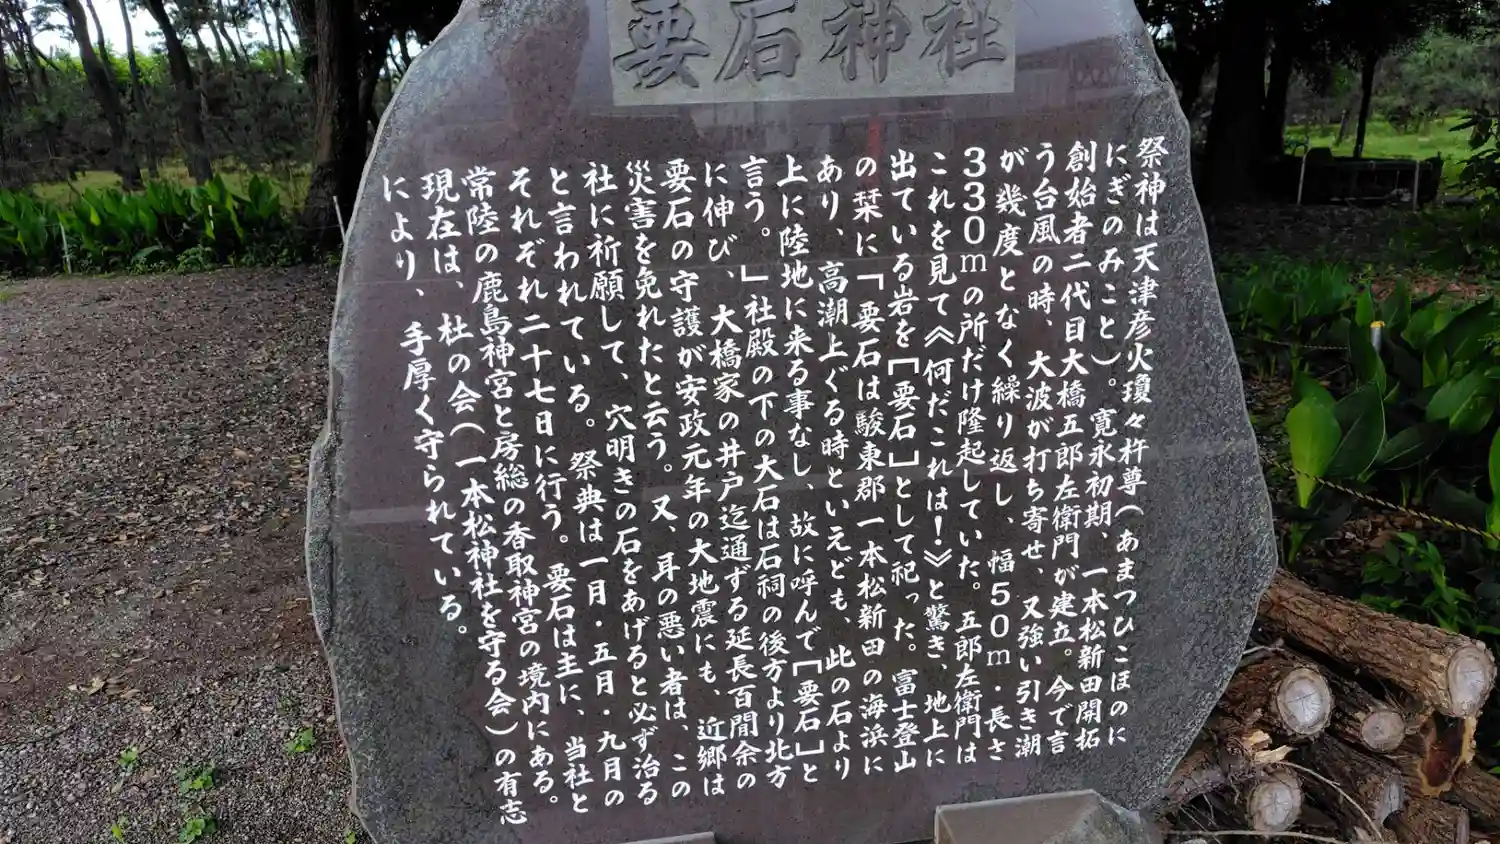 要石神社
祭神は天津彦火瓊々杵尊（あまつひこほのに
にぎのみこと）。寛永初期、一本松新田開拓
創始者二代目大橋五郎左衛門が建立。今で言
う台風の時、大波が打ち寄せ、又強い引き潮
が幾度となく繰り返し、幅５０ｍ・長さ
３３０ｍの所だけ隆起していた。五郎左衛門は
これを見て《何だこれは！》と驚き、地上に
出ている岩を［要石］として祀った。富士登山
の栞に「要石は駿東郡一本松新田の海浜に
あり、高潮上ぐる時といえども、此の石より
上に陸地に来る事なし、故に呼んで［要石］と
言う。」社殿の下の大石は石祠の後方より北方
に伸び、大橋家の井戸迄通ずる延長百間余の
要石の守護が安政元年の大地震にも、近郷は
災害を免れたと云う。又、耳の悪い者は、この
社に祈願して、穴明きの石をあげると必ず治る
と言われている。祭典は一月・五月・九月の
それぞれ二十七日に行う。要石は主に、当社と
常陸の鹿島神宮と房総の香取神宮の境内にある。
現在は、杜の会（一本松神社を守る会）の有志
により、手厚く守られている。